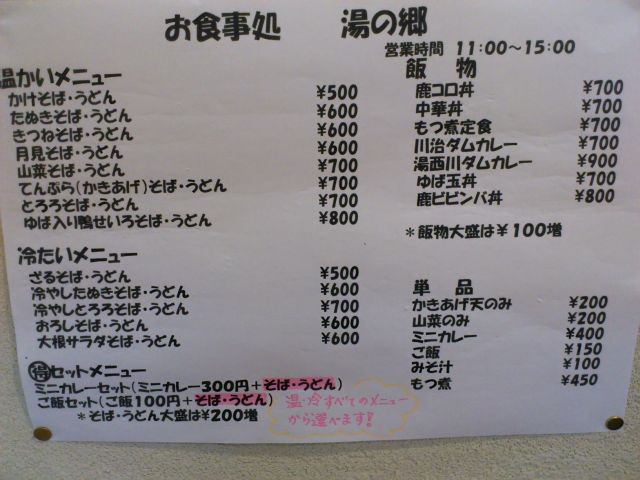 お食事処　湯の郷
営業時間 11:00～15:00
温かいメニュー
かけそば・うどん ¥500
たぬきそば・うどん ¥600
きつねそば・うどん ¥600
月見そば・うどん ¥600
山菜そば・うどん ¥700
てんぷら(かきあげ)そば・うどん ¥700
とろろそば・うどん ¥700
ゆば入り鴨せいろそば・うどん ¥800
冷たいメニュー
ざるそば・うどん ¥500
冷やしたぬきそば・うどん ¥600
冷やしとろろそば・うどん ¥700
おろしそば・うどん ¥600
大根サラダそば・うどん ¥600
得セットメニュー
ミニカレーセット(ミニカレー300円+そば・うどん)
ご飯セット(ご飯100円+そば・うどん)
*そば・うどん大盛は¥200増
温・冷すべてのメニュー
から選べます!
飯 物
鹿コロ丼 ¥700
中華丼 ¥700
もつ煮定食 ¥700
川治ダムカレー ¥700
湯西川ダムカレー ¥900
ゆば玉丼 ¥700
鹿ビビンバ丼 ¥800
*飯物大盛は¥100増
単 品
かきあげ天のみ ¥200
山菜のみ ¥200
ミニカレー ¥400
ご飯 ¥150
みそ汁 ¥100
もつ煮 ¥450